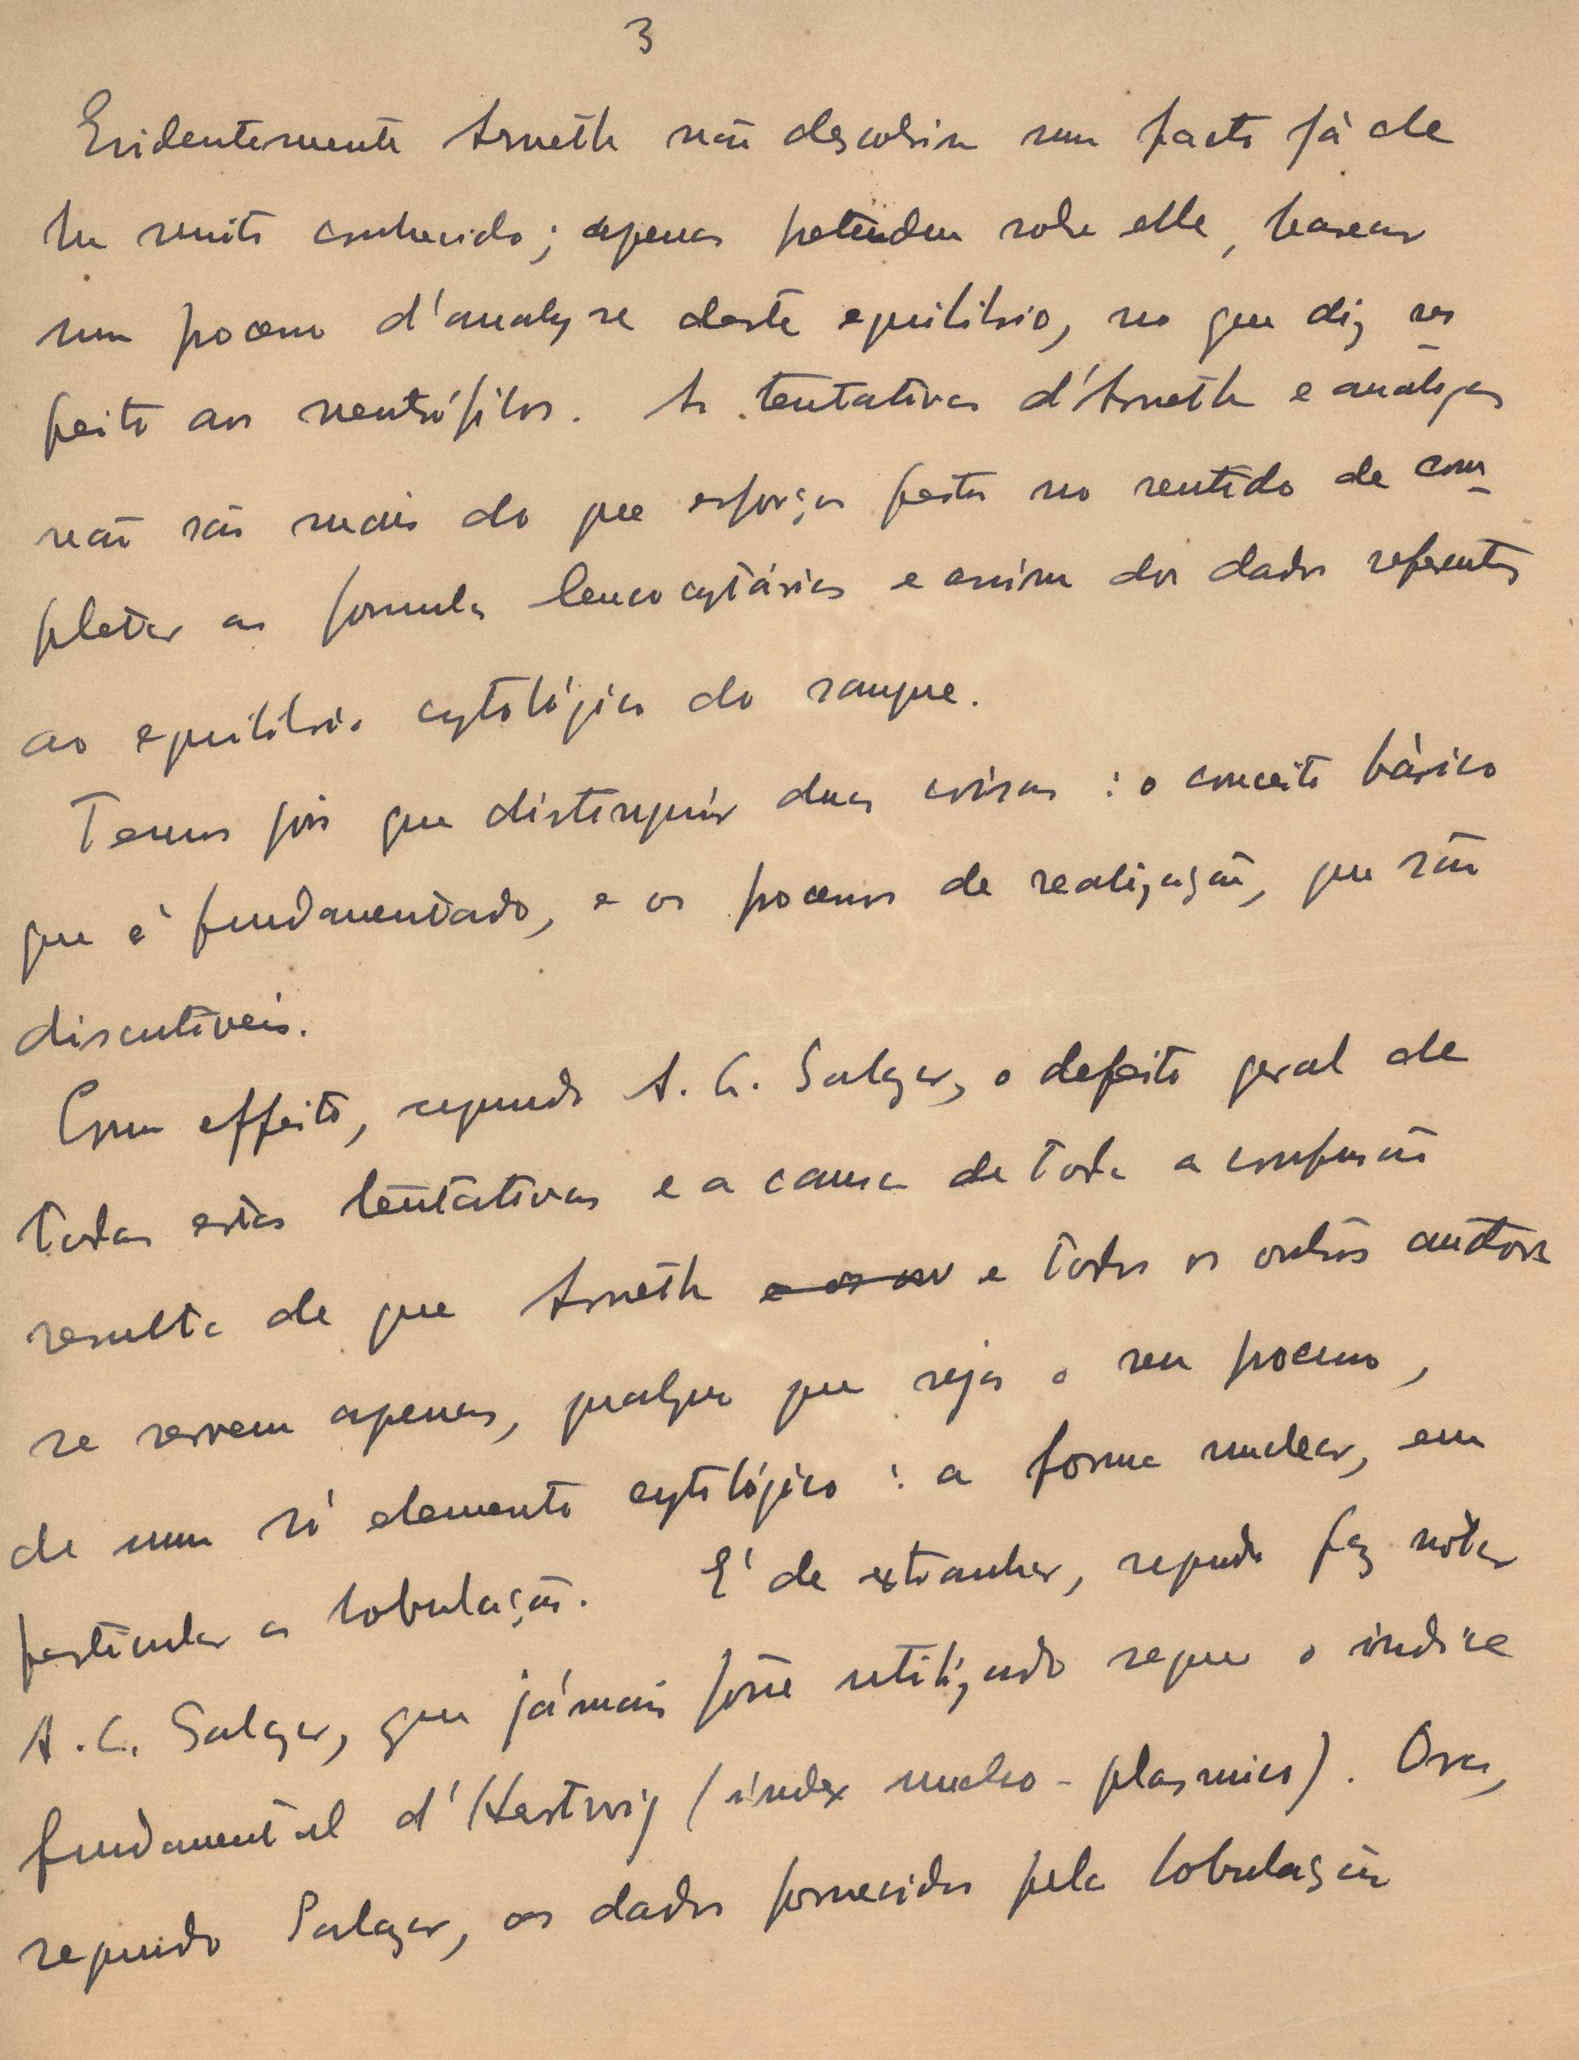 3
Evidentemente Arneth não descobriu um facto já de
ha muito conhecido; apenas pretendeu sobre elle, basear
um processo d'analyse deste equilibrio, no que diz res
peito aos neutrófilos. As tentativas d'Arneth e análogas
não são mais do que esforços feitos no sentido de com
pletar as formulas leucocytárias e assim dos dados referentes
ao equilibrio cytológico do sangue.
Temos pois que distinguir duas coisas : o conceito básico
que é fundamentado, e os processos de realização, que são
discutiveis.
Com effeito, segundo A. C. Salazar, o defeito geral de
todas estas tentativas e a causa de toda a confusão
resulta de que Arneth e os ou e todos os outros auctores
se servem apenas, qualquer que seja o seu processo,
de um só elemento cytológico : a forma nuclear, em
particular a lobulação. E' de extranhar, segundo faz notar
A. C. Salazar, que jámais fosse utilizado sequer o indice
fundamental d'Hertwig (index nucleo-plasmico). Ora,
segundo Salazar, os dados fornecidos pela lobulação